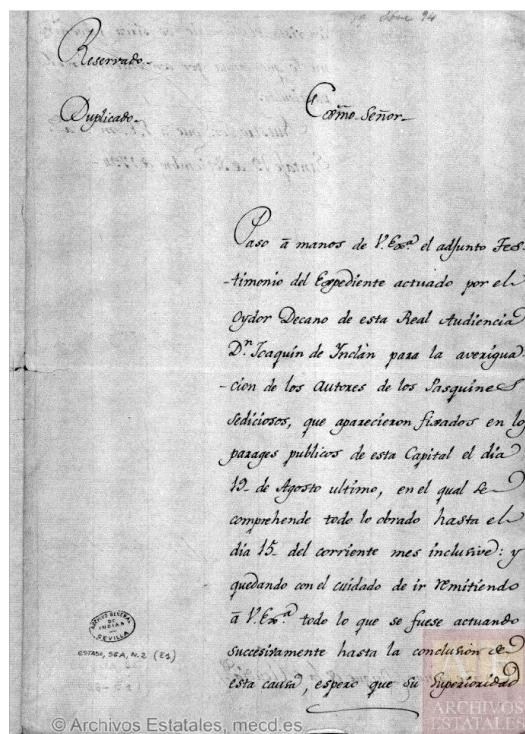 19 Sbre 94
Reservado.
Duplicado.
Exmo. Señor.
Paso à manos de V. Exa. el adjunto Tes-
-timonio del Expediente actuado por el
Oydor Decano de esta Real Audiencia
Dn. Joaquin de Inclàn para la averigua
-cion de los Autores de los Pasquines
sediciosos, que aparecieron fixados en lo
parages publicos de esta Capital el dia
19 de Agosto ultimo, en el qual se
comprehende todo lo obrado hasta el
dia 15 del corriente mes inclusive: y
quedando con el cuidado de ir remitiendo
à V. Exa. todo lo que se fuese actuando
succesivamente hasta la conclusion de
esta causa, espero que su Superioridad
ARCHIVO GENERAL
DE
INDIAS
SEVILLA
ESTADO, 56A, N.2 (E1)
ARCHIVOS
ESTATALES
© Archivos Estatales, mecd.es